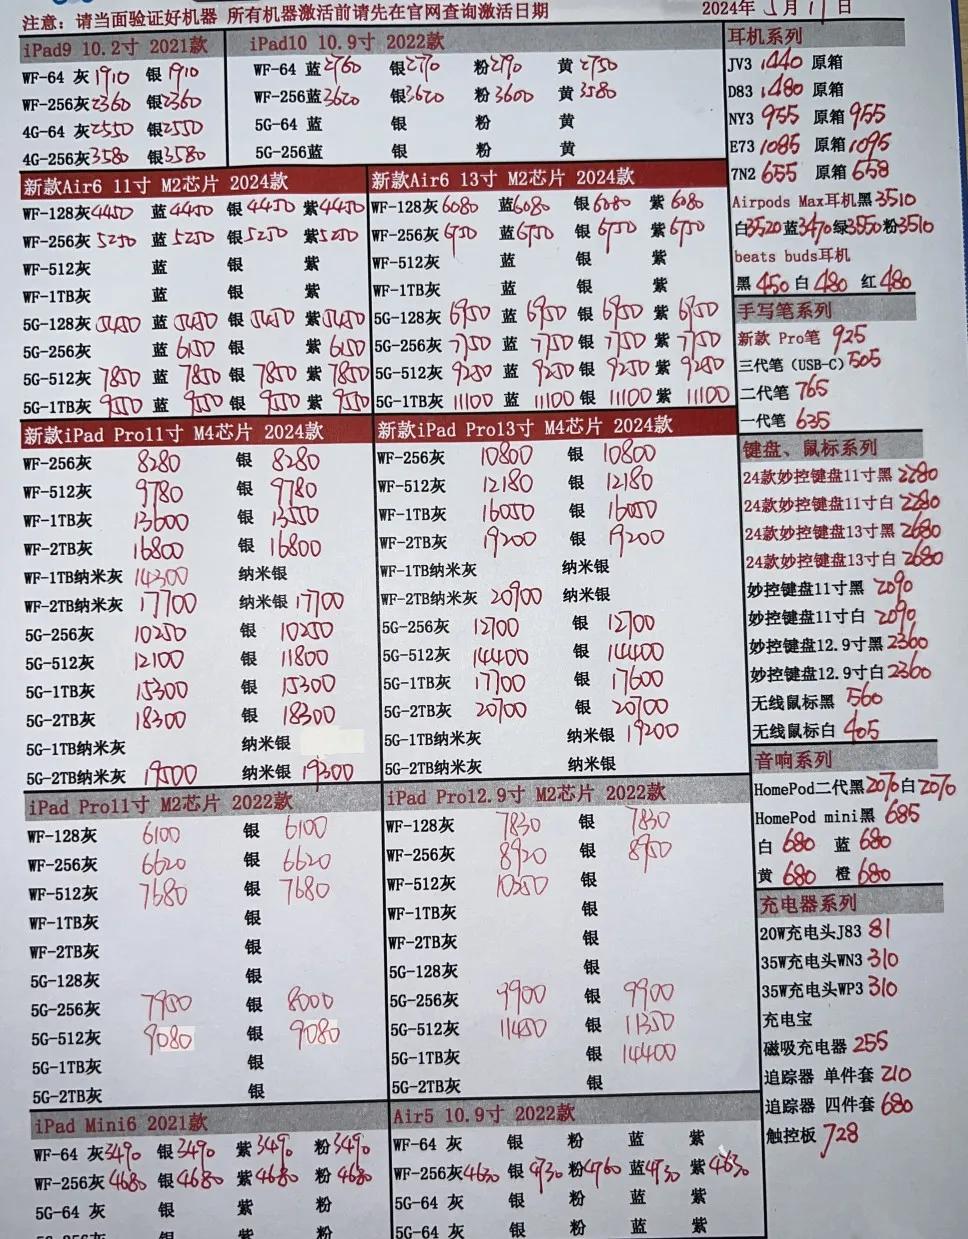 注意：请当面验证好机器 所有机器激活前请先在官网查询激活日期
2024年 5月 11日
iPad9 10.2寸 2021款
WF-64 灰1910 银1910
WF-256灰2360 银2360
4G-64 灰2550 银2550
4G-256灰3580 银3580
iPad10 10.9寸 2022款
WF-64 蓝2760 银2770 粉2790 黄2750
WF-256蓝3620 银3620 粉3600 黄3580
5G-64 蓝 银 粉 黄
5G-256蓝 银 粉 黄
新款Air6 11寸 M2芯片 2024款
WF-128灰4450 蓝4450 银4450 紫4450
WF-256灰5250 蓝5250 银5250 紫5250
WF-512灰 蓝 银 紫
WF-1TB灰 蓝 银 紫
5G-128灰5450 蓝5450 银5450 紫5450
5G-256灰 蓝6150 银 紫6150
5G-512灰7850 蓝7850 银7850 紫7850
5G-1TB灰9550 蓝9550 银9550 紫9550
新款Air6 13寸 M2芯片 2024款
WF-128灰6080 蓝6080 银6080 紫6080
WF-256灰6750 蓝6750 银6750 紫6750
WF-512灰 蓝 银 紫
WF-1TB灰 蓝 银 紫
5G-128灰6950 蓝6950 银6950 紫6950
5G-256灰7750 蓝7750 银7750 紫7750
5G-512灰9250 蓝9250 银9250 紫9250
5G-1TB灰11100 蓝11100 银11100 紫11100
新款iPad Pro11寸 M4芯片 2024款
WF-256灰 8280 银 8280
WF-512灰 9780 银 9780
WF-1TB灰 13600 银 13550
WF-2TB灰 16800 银 16800
WF-1TB纳米灰 14300 纳米银
WF-2TB纳米灰 17700 纳米银 17700
5G-256灰 10250 银 10250
5G-512灰 12100 银 11800
5G-1TB灰 15300 银 15300
5G-2TB灰 18300 银 18300
5G-1TB纳米灰 纳米银
5G-2TB纳米灰 19500 纳米银 19300
新款iPad Pro13寸 M4芯片 2024款
WF-256灰 10800 银 10800
WF-512灰 12180 银 12180
WF-1TB灰 16050 银 16050
WF-2TB灰 19200 银 19200
WF-1TB纳米灰 纳米银
WF-2TB纳米灰 20900 纳米银
5G-256灰 12700 银 12700
5G-512灰 14400 银 14400
5G-1TB灰 17700 银 17600
5G-2TB灰 20700 银 20700
5G-1TB纳米灰 纳米银 19200
5G-2TB纳米灰 纳米银
iPad Pro11寸 M2芯片 2022款
WF-128灰 6100 银 6100
WF-256灰 6620 银 6620
WF-512灰 7680 银 7680
WF-1TB灰 银
WF-2TB灰 银
5G-128灰 银
5G-256灰 7950 银 8000
5G-512灰 9080 银 9080
5G-1TB灰 银
5G-2TB灰 银
iPad Pro12.9寸 M2芯片 2022款
WF-128灰 7830 银 7830
WF-256灰 8920 银 8950
WF-512灰 10350 银
WF-1TB灰 银
WF-2TB灰 银
5G-128灰 银
5G-256灰 9900 银 9900
5G-512灰 11450 银 11350
5G-1TB灰 银 14400
5G-2TB灰 银
iPad Mini6 2021款
WF-64 灰3490 银3490 紫3490 粉3490
WF-256灰4680 银4680 紫4680 粉4680
5G-64 灰 银 紫 粉
Air5 10.9寸 2022款
WF-64 灰 银 粉 蓝 紫
WF-256灰4630 银4730 粉4760 蓝4730 紫4630
5G-64 灰 银 粉 蓝 紫
5G-64 灰 银 粉 蓝 紫
耳机系列
JV3 1440 原箱
D83 1480 原箱
NY3 955 原箱955
E73 1085 原箱1095
7N2 655 原箱658
Airpods Max耳机黑3510
白3520蓝3470绿3550粉3510
beats buds耳机
黑450 白480 红480
手写笔系列
新款 Pro笔 925
三代笔（USB-C）505
二代笔 765
一代笔 635
键盘、鼠标系列
24款妙控键盘11寸黑2280
24款妙控键盘11寸白2280
24款妙控键盘13寸黑2680
24款妙控键盘13寸白2680
妙控键盘11寸黑 2090
妙控键盘11寸白 2090
妙控键盘12.9寸黑2360
妙控键盘12.9寸白2360
无线鼠标黑 560
无线鼠标白 405
音响系列
HomePod二代黑2070白2070
HomePod mini黑 685
白 680 蓝 680
黄 680 橙 680
充电器系列
20W充电头J83 81
35W充电头WN3 310
35W充电头WP3 310
充电宝
磁吸充电器 255
追踪器 单件套 210
追踪器 四件套 680
触控板 728